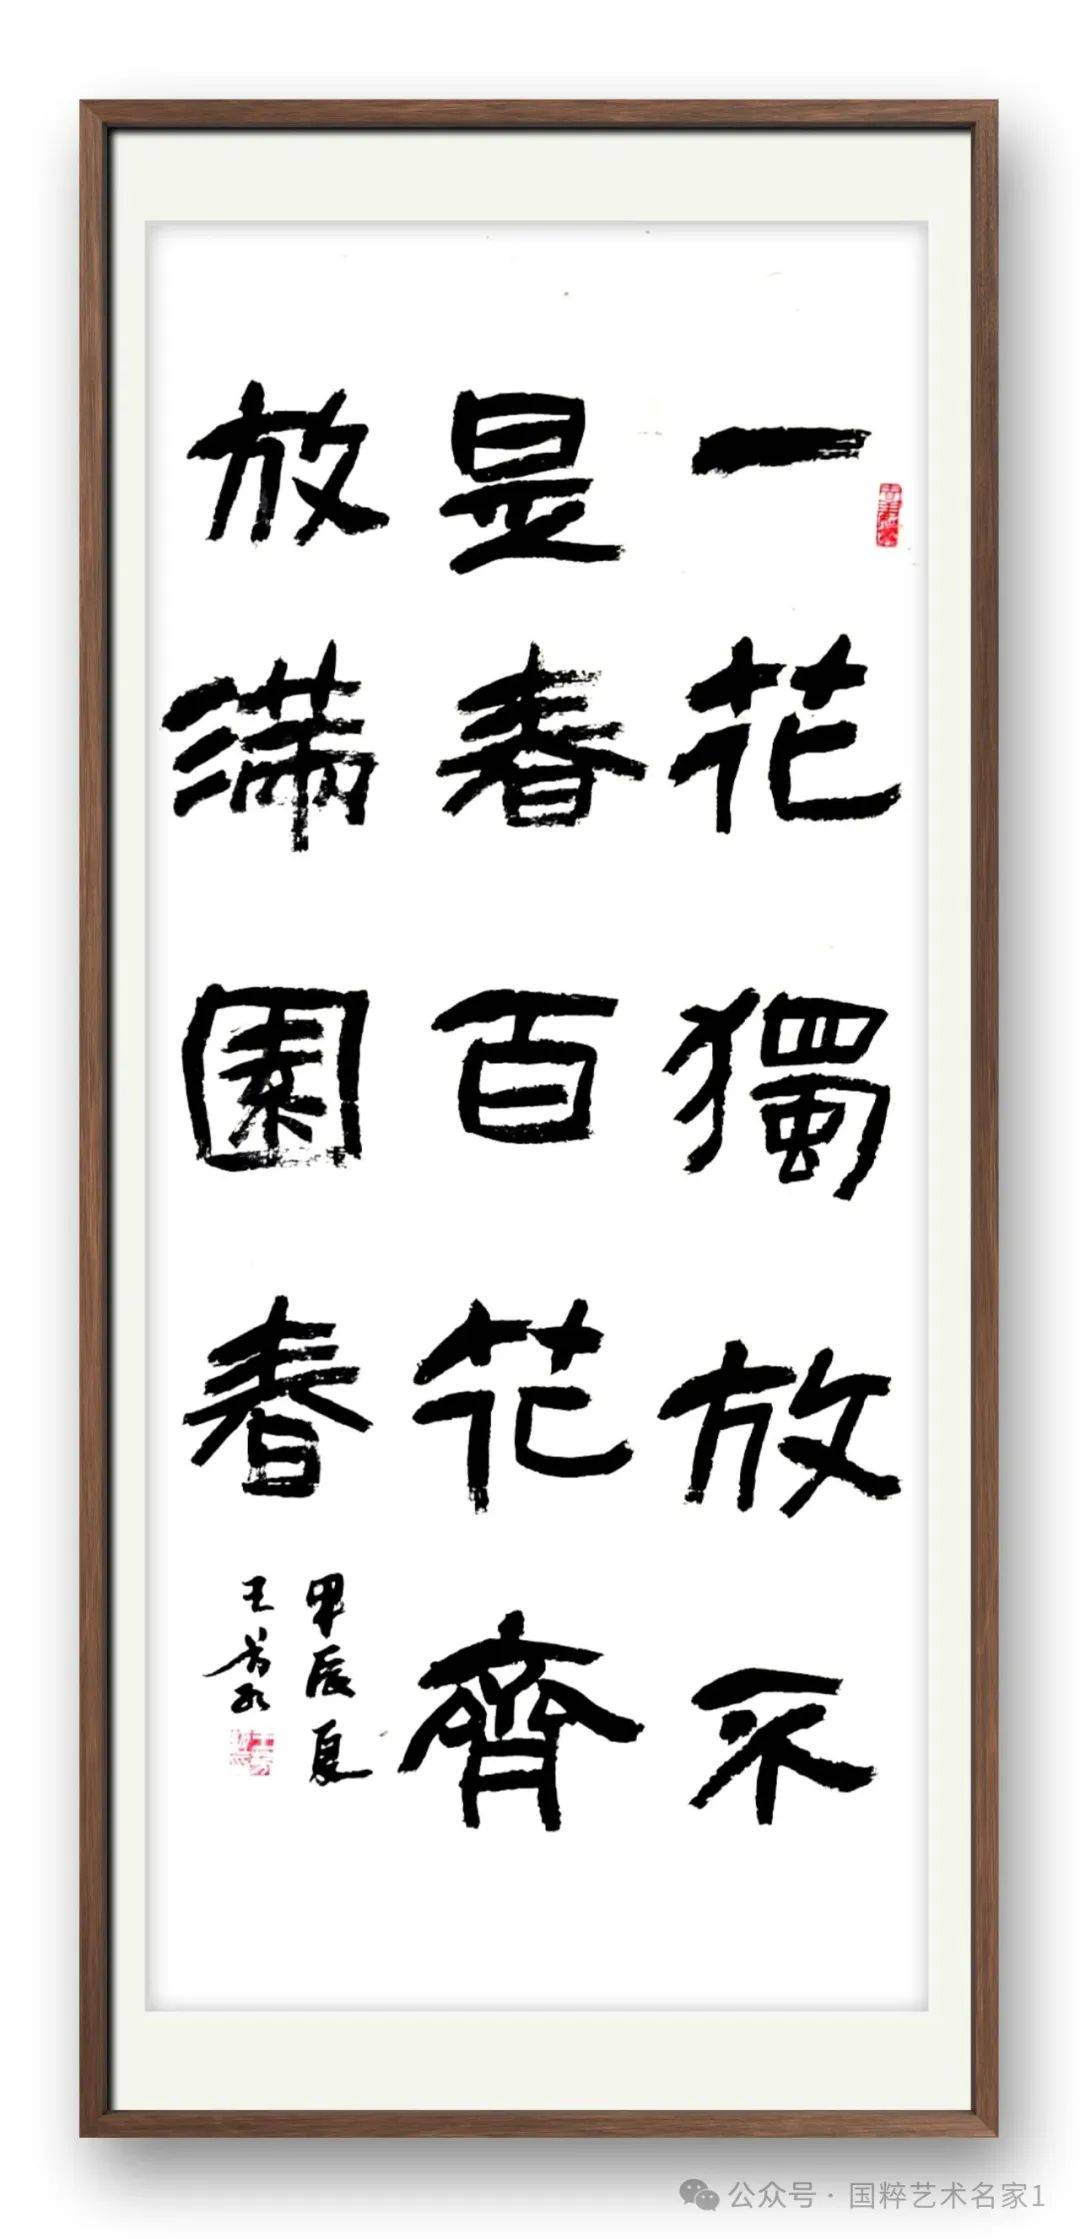 一花獨放不
是春百花齊
放滿園春
甲辰夏
公众号 · 国粹艺术名家1